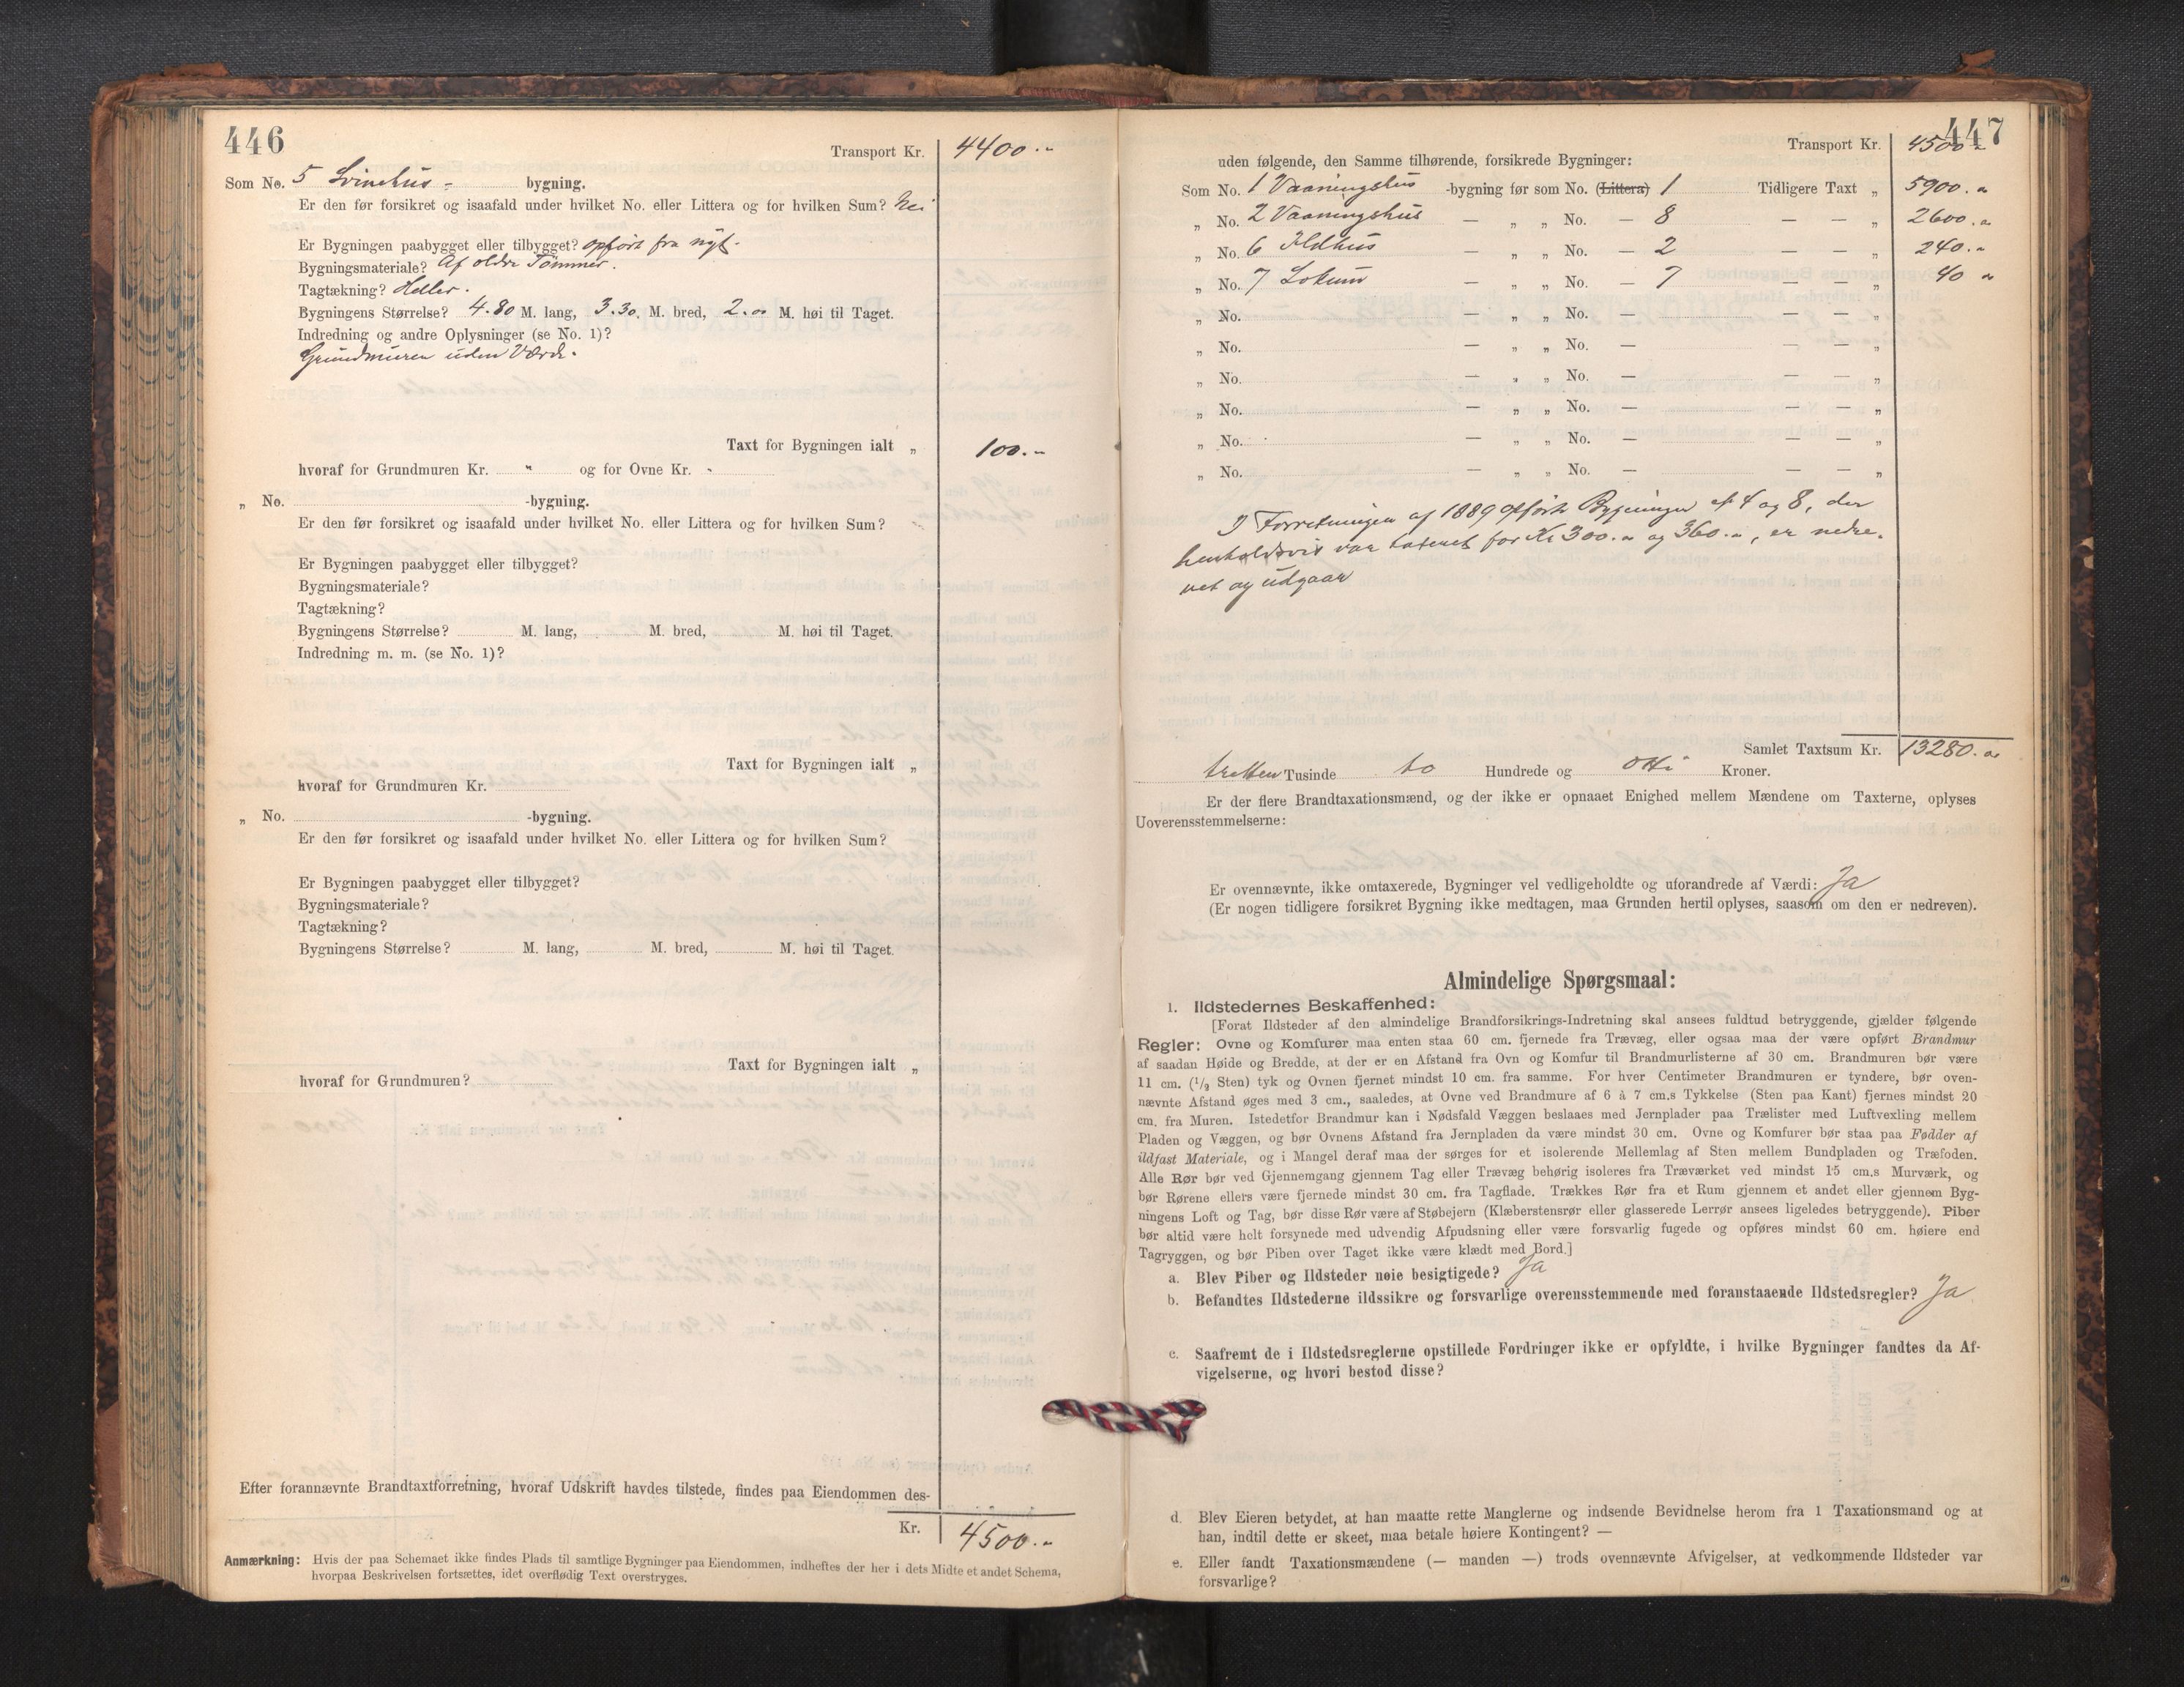 446
Transport Kr. 4400.„
Som No. 5 Svinehus - bygning.
Er den før forsikret og isaafald under hvilket No. eller Littera og for hvilken Sum? Nei
Er Bygningen paabygget eller tilbygget? opført fra nyt.
Bygningsmateriale? Af ældre Tømmer.
Tagtækning? Heller.
Bygningens Størrelse? 4.80 M. lang, 3.30 M. bred, 2.00 M. høi til Taget.
Indredning og andre Oplysninger (se No. 1)?
Grundmuren uden Værdi.
Taxt for Bygningen ialt „ 100.„
hvoraf for Grundmuren Kr. „ og for Ovne Kr. „
„ No. -bygning.
Er den før forsikret og isaafald under hvilket No. eller Littera og for hvilken Sum?
Er Bygningen paabygget eller tilbygget?
Bygningsmateriale?
Tagtækning?
Bygningens Størrelse? M. lang, M. bred, M. høi til Taget.
Indredning m. m. (se No. 1)?
Taxt for Bygningen ialt „
hvoraf for Grundmuren Kr.
„ No. -bygning.
Er den før forsikret og isaafald under hvilket No. eller Littera og for hvilken Sum?
Er Bygningen paabygget eller tilbygget?
Bygningsmateriale?
Tagtækning?
Bygningens Størrelse? M. lang, M. bred, M. høi til Taget.
Taxt for Bygningen ialt „
hvoraf for Grundmuren?
Efter forannævnte Brandtaxtforretning, hvoraf Udskrift havdes tilstede, findes paa Eiendommen des-
Kr. 4500.„
Anmærkning: Hvis der paa Schemaet ikke findes Plads til samtlige Bygninger paa Eiendommen, indheftes der her i dets Midte et andet Schema,
hvorpaa Beskrivelsen fortsættes, idet overflødig Text overstryges.
447
Transport Kr. 4500.„
uden følgende, den Samme tilhørende, forsikrede Bygninger:
Som No. 1 Vaaningshus -bygning før som No. (Littera) 1 Tidligere Taxt „ 5900.„
„ No. 2 Vaaningshus — „ „ No. — 8 — — „ 2600.„
„ No. 6 Ildhus — „ „ No. — 2 — — „ 240.„
„ No. 7 Lokum — „ „ No. — 7 — — „ 40 „
„ No. — „ „ No. — — — „
„ No. — „ „ No. — — — „
„ No. — „ „ No. — — — „
„ No. — „ „ No. — — — „
„ No. — „ „ No. — — — „
„ No. — „ „ No. — — — „
I Forretningen af 1889 opførte Bygninger No 4 og 8, der
henholdsvis var taxeret for Kr 300.„ og 360.„, er nedre-
vet og udgaar
Samlet Taxtsum Kr. 13280.„
tretten Tusinde to Hundrede og otti Kroner.
Er der flere Brandtaxationsmænd, og der ikke er opnaaet Enighed mellem Mændene om Taxterne, oplyses
Uoverensstemmelserne:
Er ovennævnte, ikke omtaxerede, Bygninger vel vedligeholdte og uforandrede af Værdi: Ja
(Er nogen tidligere forsikret Bygning ikke medtagen, maa Grunden hertil oplyses, saasom om den er nedreven).
Almindelige Spørgsmaal:
1. Ildstedernes Beskaffenhed:
[Forat Ildsteder af den almindelige Brandforsikrings-Indretning skal ansees fuldtud betryggende, gjælder følgende
Regler: Ovne og Komfurer maa enten staa 60 cm. fjernede fra Trævæg, eller ogsaa maa der være opført Brandmur
af saadan Høide og Bredde, at der er en Afstand fra Ovn og Komfur til Brandmurlisterne af 30 cm. Brandmuren bør være
11 cm. (1/2 Sten) tyk og Ovnen fjernet mindst 10 cm. fra samme. For hver Centimeter Brandmuren er tyndere, bør oven-
nævnte Afstand øges med 3 cm., saaledes, at Ovne ved Brandmure af 6 à 7 cm.s Tykkelse (Sten paa Kant) fjernes mindst 20
cm. fra Muren. Istedetfor Brandmur kan i Nødsfald Væggen beslaaes med Jernplader paa Trælister med Luftvexling mellem
Pladen og Væggen, og bør Ovnens Afstand fra Jernpladen da være mindst 30 cm. Ovne og Komfurer bør staa paa Fødder af
ildfast Materiale, og i Mangel deraf maa der sørges for et isolerende Mellemlag af Sten mellem Bundpladen og Træfoden.
Alle Rør bør ved Gjennemgang gjennem Tag eller Trævæg behørig isoleres fra Træværket ved mindst 15 cm.s Murværk, og
bør Rørene ellers være fjernede mindst 30 cm. fra Tagflade. Trækkes Rør fra et Rum gjennem et andet eller gjennem Byg-
ningens Loft og Tag, bør disse Rør være af Støbejern (Klæberstensrør eller glasserede Lerrør ansees ligeledes betryggende). Piber
bør altid være helt forsynede med udvendig Afpudsning eller være forsvarlig fugede og opføres mindst 60 cm. høiere end
Tagryggen, og bør Piben over Taget ikke være klædt med Bord.]
a. Blev Piber og Ildsteder nøie besigtigede? Ja
b. Befandtes Ildstederne ildssikre og forsvarlige overensstemmende med foranstaaende Ildstedsregler? Ja
c. Saafremt de i Ildstedsreglerne opstillede Fordringer ikke er opfyldte, i hvilke Bygninger fandtes da Af-
vigelserne, og hvori bestod disse?
d. Blev Eieren betydet, at han maatte rette Manglerne og indsende Bevidnelse herom fra 1 Taxationsmand og at
han, indtil dette er skeet, maa betale høiere Kontingent? —
e. Eller fandt Taxationsmændene (— manden —) trods ovennævnte Afvigelser, at vedkommende Ildsteder var
forsvarlige?